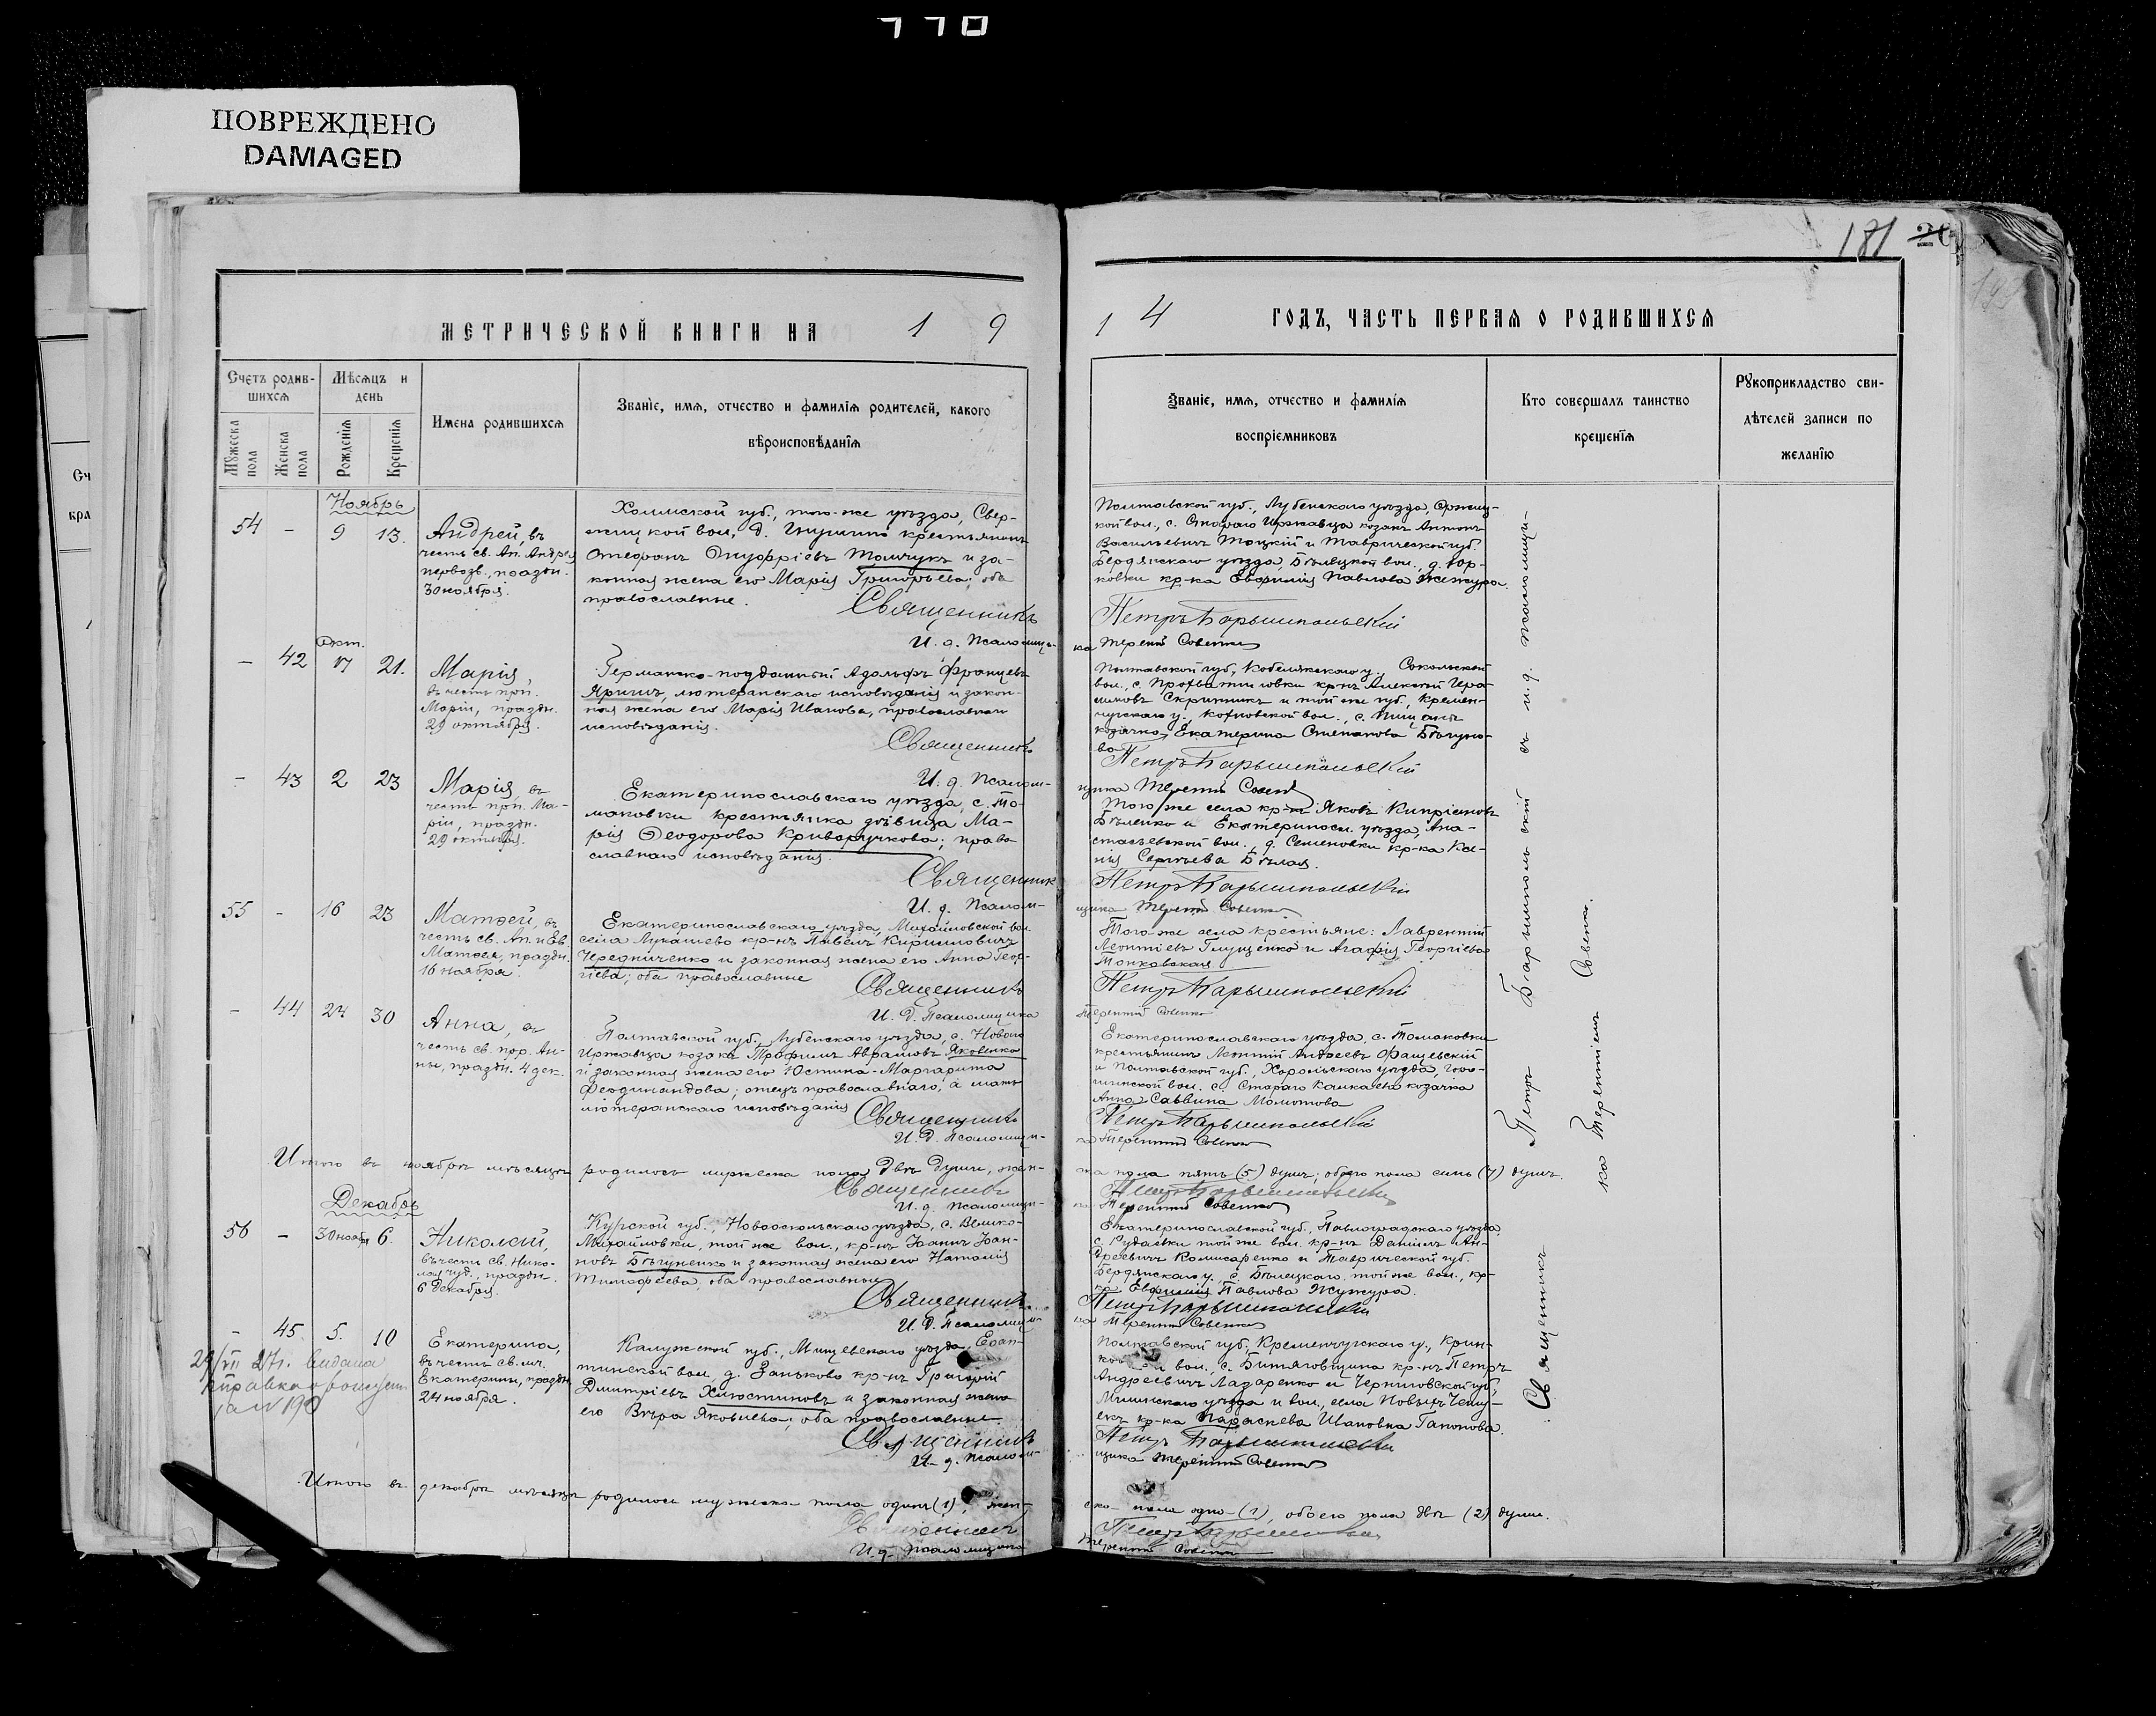 ПОВРЕЖДЕНО
DAMAGED
181
МЕТРИЧЕСКОЙ КНИГИ НА 1 9
1 4 ГОДЪ, ЧАСТЬ ПЕРВАЯ О РОДИВШИХСЯ
Счетъ родив-
шихся
Мужеска
пола
Женска
пола
Мѣсяцъ и
день
Рожденія
Крещенія
Имена родившихся
Званіе, имя, отчество и фамилія родителей, какого
вѣроисповѣданія
Званіе, имя, отчество и фамилія
воспріемниковъ
Кто совершалъ таинство
крещенія
Рукоприкладство сви-
дѣтелей записи по
желанію
Ноябрь
54 - 9 13.
Андрей, въ
честь св. Ап. Андрея
первозв., праздн.
30 ноября.
Холмской губ., того-же уѣзда, Свер-
жицкой вол., д. крестьянинъ
Стефанъ Онуфріевъ Томчукъ и за-
конная жена его Марія Григорьева; оба
православные.
Священникъ
И. д. Псаломщи-
Полтавской губ., Лубенскаго уѣзда, Оржиц-
кой вол., с. Стараго Иржавца козакъ Антонъ
Васильевичъ Тоцкій и Таврической губ.
Бердянскаго уѣзда, вол., д. Юр-
ковки кр-ка Евфимія Павлова Жежура.
Петръ Барышпольскій
ка Терентій Совенко
Окт.
- 42 17 21.
Марія,
въ честь прп.
Маріи, праздн.
29 октября.
Германско-подданный Адольфъ Францевъ
лютеранскаго исповѣданія и закон-
ная жена его Марія Иванова, православнаго
исповѣданія.
Священникъ
И. д. Псалом-
Полтавской губ., Кобелякскаго у., Сокольской
вол., с. кр-нъ Алексѣй
Скрипникъ и той же губ., Кремен-
чугскаго у., вол., с.
козачка Екатерина Степанова Бѣгуно-
ва
Петръ Барышпольскій
щика Терентій Совенко
- 43 2 23
Марія, въ
честь прп. Ма-
ріи, праздн.
29 октября.
Екатеринославскаго уѣзда, с. То-
маковки крестьянка дѣвица Ма-
рія Ѳеодорова Криворучкова; право
славнаго исповѣданія.
Священник
И. д. Псалом-
Того же села кр-нъ Яковъ Кипріановъ
Бѣленко и Екатериносл. уѣзда, Ана-
стасьевской вол., д. Семеновки кр-ка Ксе-
нія Сергѣева Бѣлая.
Петръ Барышпольскій
щика Терентій Совенко
55 - 16 23
Матѳей, въ
честь св. Ап. и Ев.
Матѳея, праздн.
16 ноября.
Екатеринославскаго уѣзда, Михайловской вол.
села Лукашево кр-нъ Павелъ Кирилловичъ
Чередниченко и законная жена его Анна Геор-
гіева; оба православные
Священникъ
И. д. Псаломщика
Того же села крестьяне: Лаврентій
Леонтіевъ Глущенко и Агафія Георгіева
Петръ Барышпольскій
Терентій Совенко
- 44 24 30
Анна, въ
честь св. пр. Ан-
ны, праздн. 4 дек.
Полтавской губ., Лубенскаго уѣзда, с. Новаго
Иржавца козакъ Трофимъ Авраамовъ Яковенко
и законная жена его Юстина-Маргарита
Фердинандова; отецъ православнаго, а мать
лютеранскаго исповѣданія
Священникъ
И. д. Псаломщи-
Екатеринославскаго уѣзда, с. Томаковки
крестьянинъ Леонтій Андреевъ
и Полтавской губ., Хорольскаго уѣзда,
вол. с. Стараго козачка
Анна Саввина Момотова
Петръ Барышпольскій
ка Терентій Совенко
Итого въ ноябрѣ мѣсяцѣ родилось мужеска пола двѣ души, жен-
ска пола пять (5) душъ; обоего пола семь (7) душъ.
Священникъ
Петръ Барышпольскій
И. д. Псаломщи-
ка Терентій Совенко
Декабрь
56 - 30 нояб. 6.
Николай,
въ честь св. Нико-
лая чуд., праздн.
6 декабря.
Курской губ., Новооскольскаго уѣзда, с. Велико-
Михайловки, той же вол., кр-нъ Іоаннъ Іоан-
новъ Бѣгуненко и законная жена его Наталія
Тимофеева, оба православные
Священникъ
И. д. Псаломщи-
Екатеринославской губ., Павлоградскаго уѣзда,
с. той же вол. кр-нъ Даніилъ Ан-
дреевичъ Комисаренко и Таврической губ.
Бердянскаго у., с. той же вол., кр-
ка Евфимія Павлова Жужура.
Петръ Барышпольскій
ка Терентій Совенко
- 45. 5. 10
Екатерина,
въ честь св. мч.
Екатерины, праздн.
24 ноября.
Калужской губ., уѣзда,
вол., д. Занъково кр-нъ Григорій
Дмитріевъ Хлюстиновъ и законная жена
его Вѣра Яковлева; оба православные
Священникъ
И. д. Псалом-
Полтавской губ., Кременчугскаго у.,
вол., с. кр-нъ Петръ
Андреевичъ Лазаренко и Черниговской губ.,
уѣзда и вол., села Новыхъ
кр-ка Параскева Гапонова.
Петръ Барышпольскій
щика Терентій Совенко
выдана
Итого въ декабрѣ мѣсяцѣ родилось мужеска пола одинъ (1), жен-
ска пола одна (1), обоего пола двѣ (2) души.
Священникъ
Петръ Барышпольскій
И. д. псаломщика
Терентій Совенко
Священникъ Петръ Барышпольскій съ и. д. псаломщи-
ка Терентіемъ Совенко.